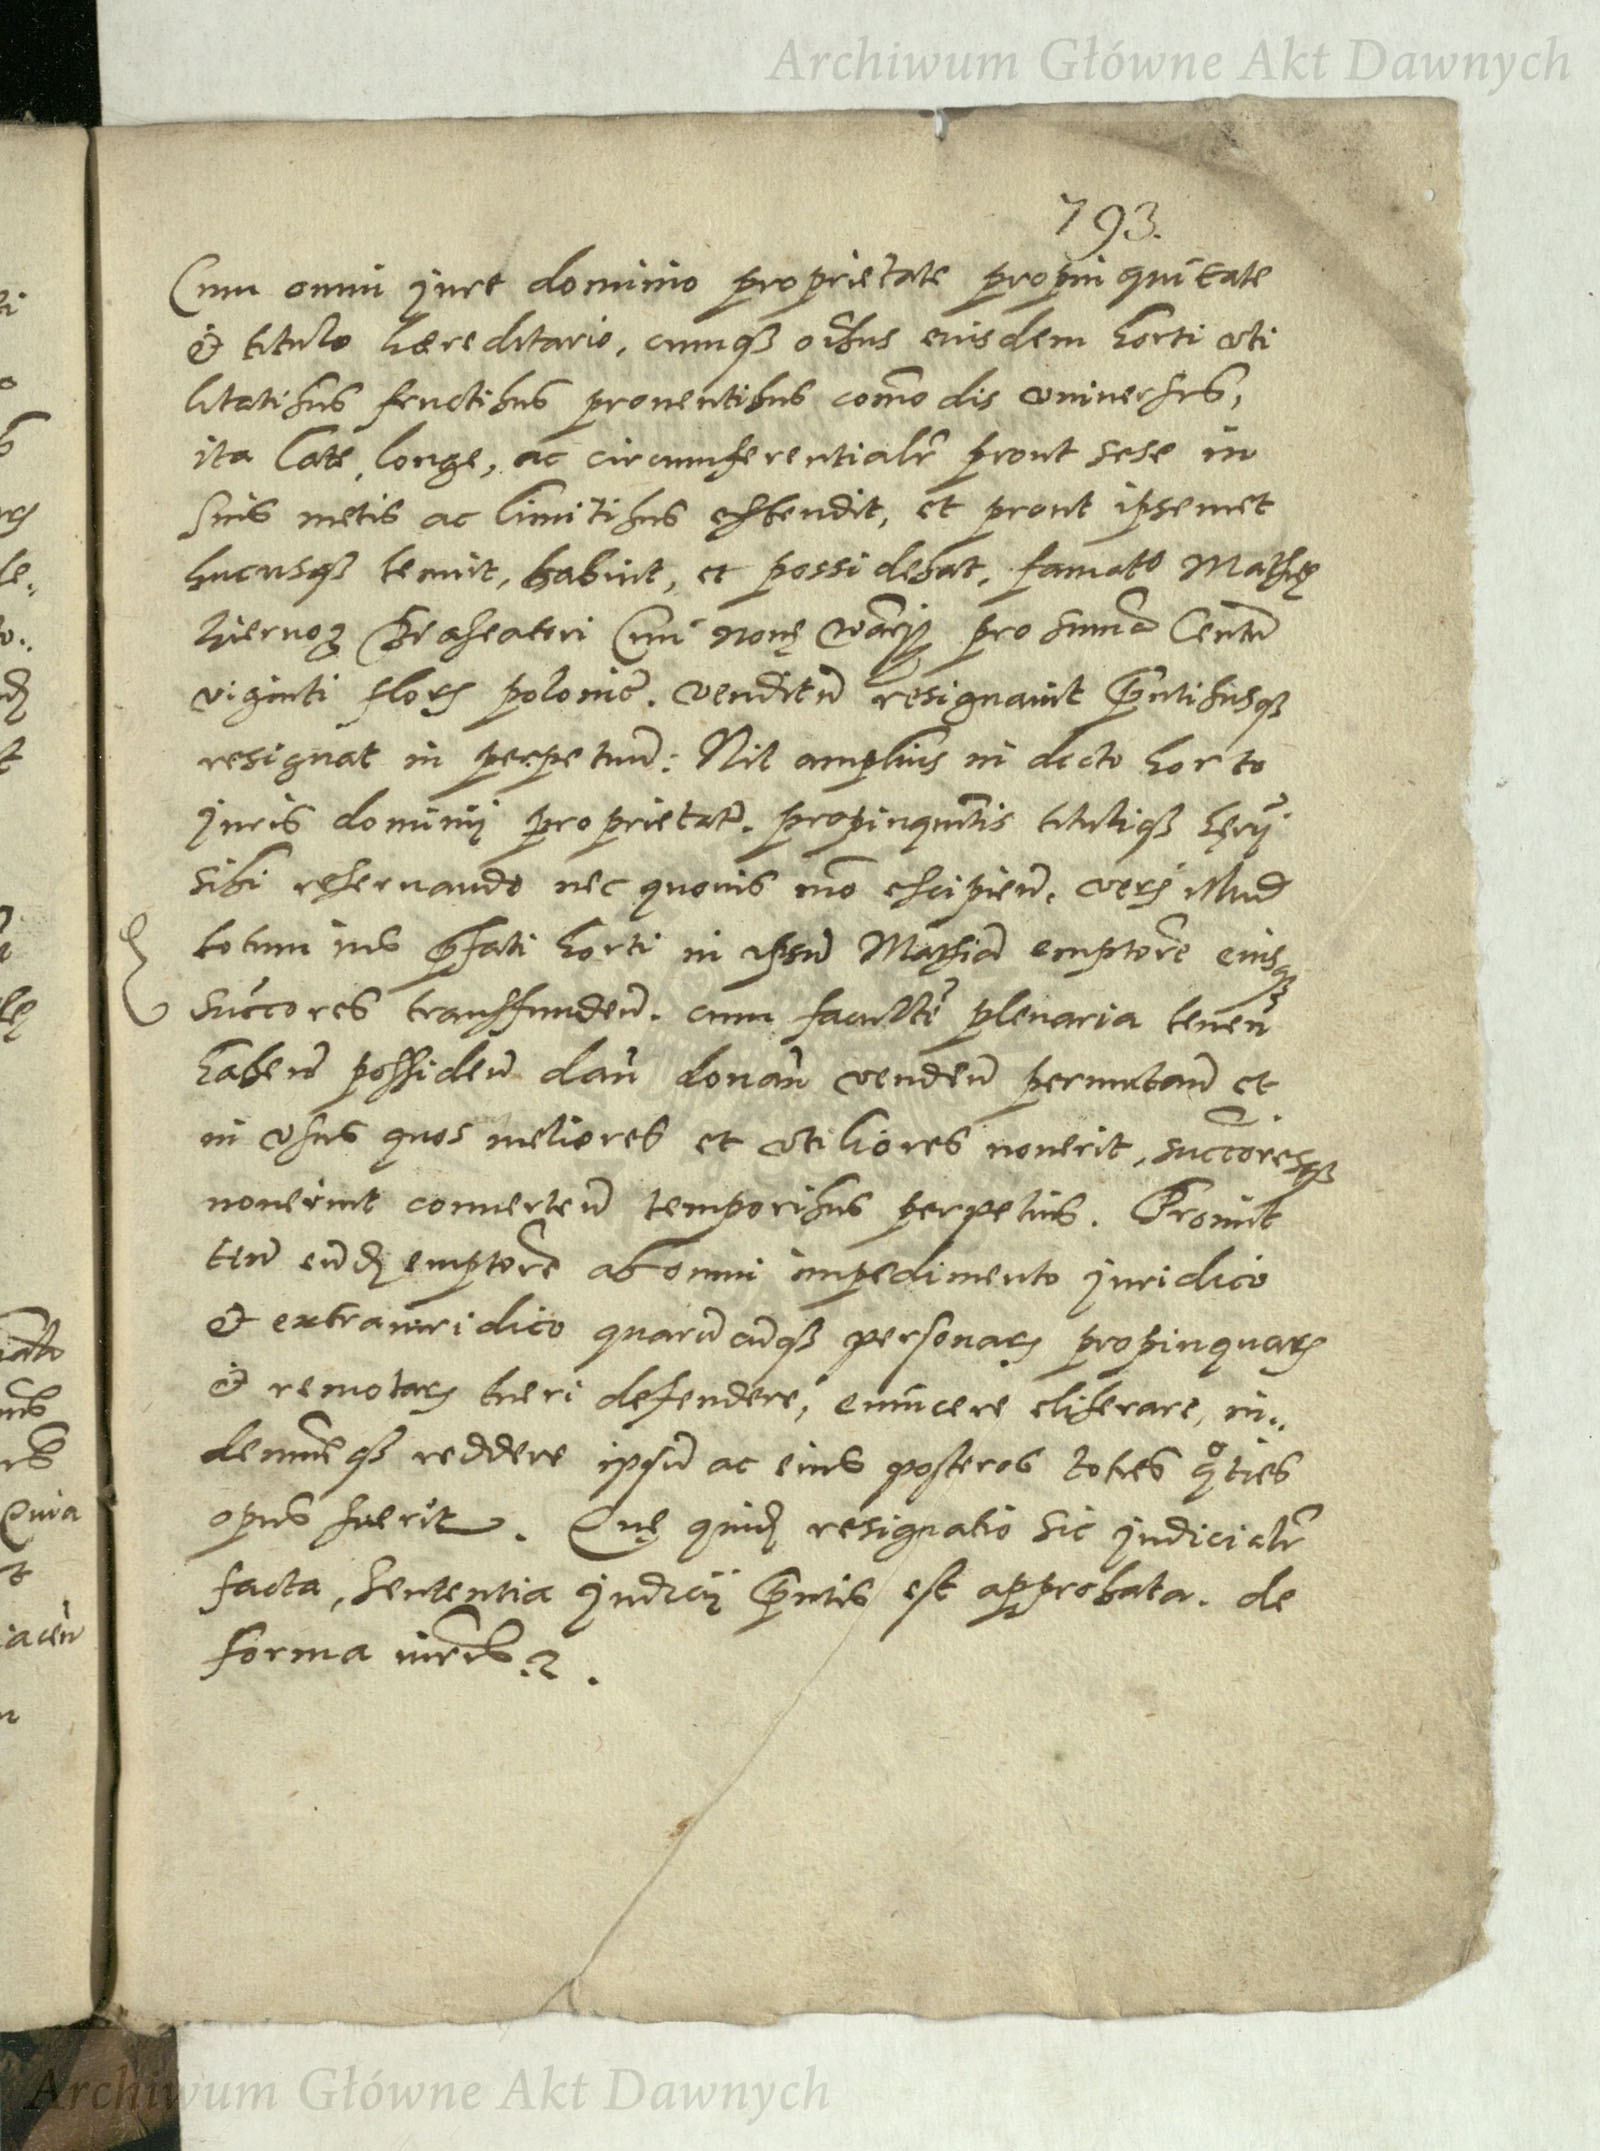 Archiwum Główne Akt Dawnych
793.
Cum omni jure dominio proprietate propinquitate
& titulo hæreditario, cumq₃ oĩbus eiusdem horti uti
litatibus fructibus proventibus com̃odis universis,
ita late, longe, ac circumferentialr̃ prout sese in
suis metis ac limitibus extendit, et prout ipsemet
hucusq₃ tenuit, habuit, et possidebat, famato Mathię
Braseatori Civi novę pro sum̃a Centũ
viginti flor. polonic̃. venditũ resignavit p̃ntibusq₃
resignat in perpetuũ: Nil amplius in dicto horto
juris dominij proprietat̃. propinquit̃is tituliq₃ hęrij̃
sibi reservando nec quovis mõ excipien̄. vers illud
totum ius p̃fati horti in ipsũ Mathiã emptorẽ eiusq₃
succores transfunden̄. cum facult̃e plenaria tenen̄
haben̄ possiden̄ dan̄ donan̄ venden̄ permutan̄ et
in usus quos meliores et utiliores noverit, succoresq₃
noverint converten̄ temporibus perpetuis. Promit
ten̄ eũd emptorẽ ab omni impedimento juridico
& extraiuridico quarũcũq₃ personar. propinquar.
& remotar. tueri defendere, evincere eliberare, in..
demnẽq₃ reddere ipsũ ac eius posteros toties q°ties
opus fuerit. Quę quid. resignatio sic judicialr̃
facta, sententia judicij p̃ntis est approbata. de
forma iuris.
Archiwum Główne Akt Dawnych